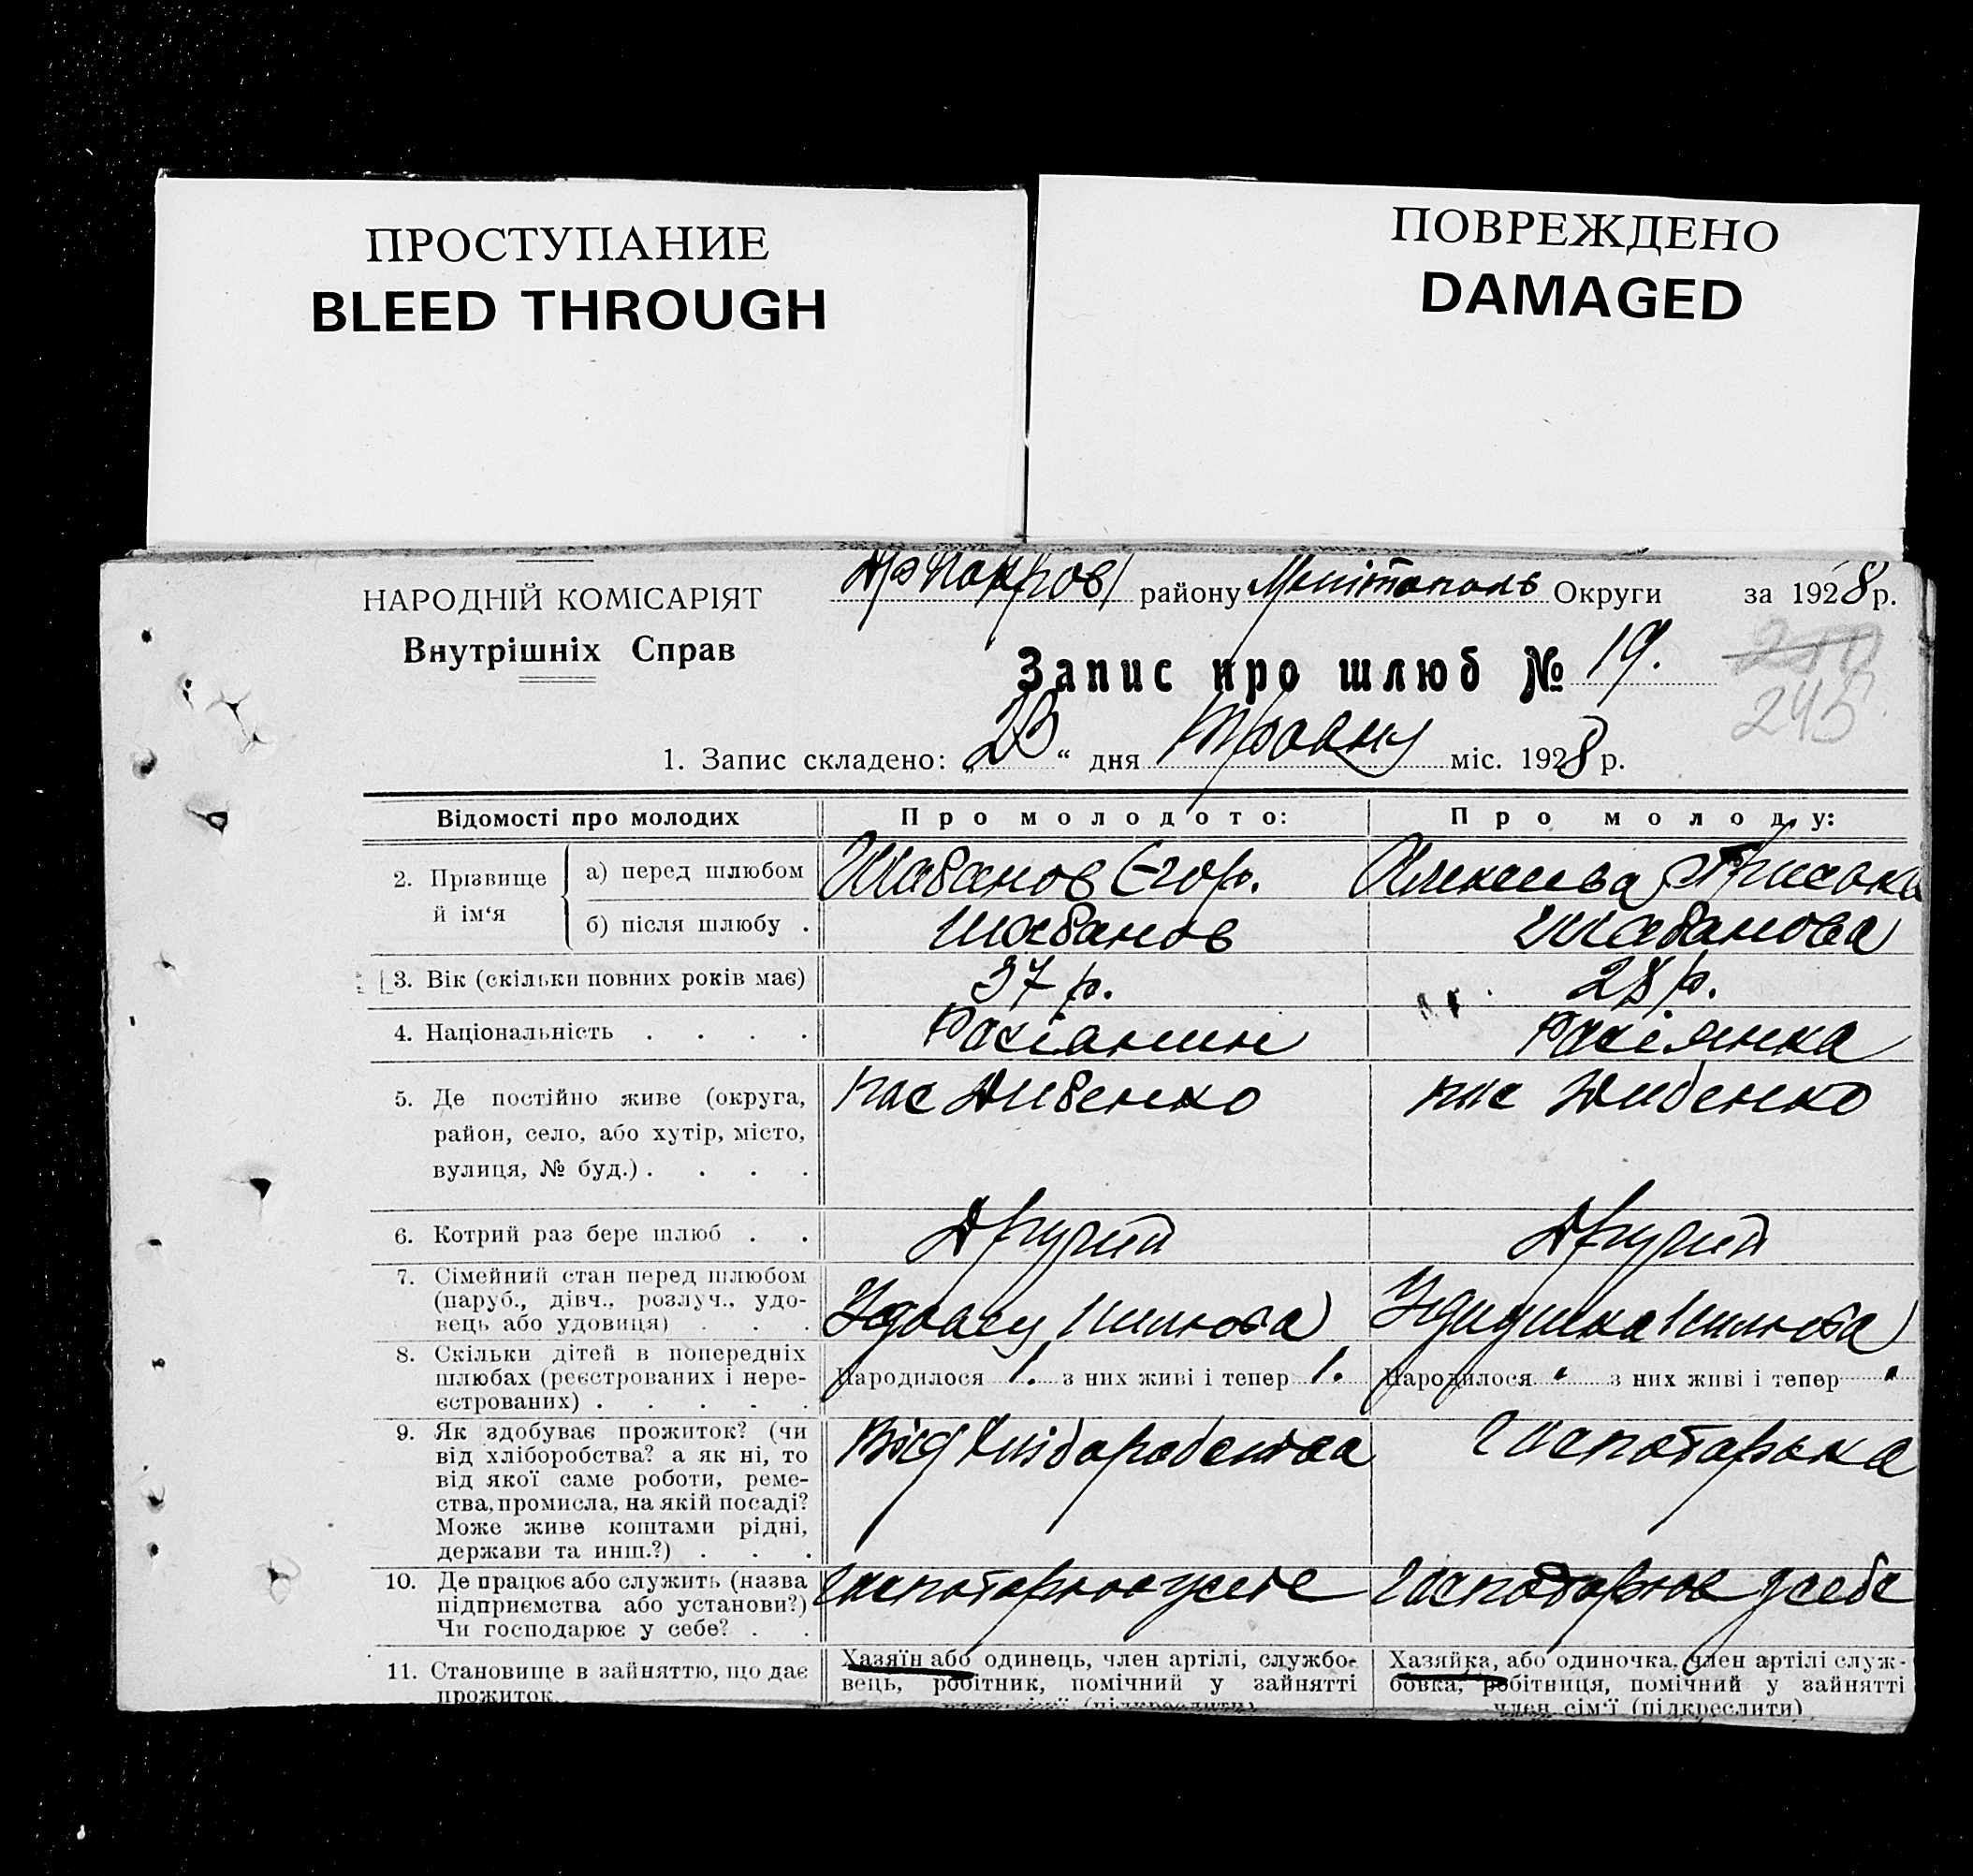 ПРОСТУПАНИЕ
BLEED THROUGH
ПОВРЕЖДЕНО
DAMAGED
НАРОДНІЙ КОМІСАРІЯТ
Внутрішніх Справ
району Мелітополь Округи за 1928 р.
Запис про шлюб № 19.
245
1. Запис складено: „23“ дня Травня міс. 1928 р.
Відомості про молодих
Про молодого:
Про молоду:
2. Прізвище й ім‘я
а) перед шлюбом
Шабанов Єгор.
б) після шлюбу .
Шабанов
Шабанова
3. Вік (скільки повних років має)
37 р.
28 р.
4. Національність . . . .
Росіанин
Росіянка
5. Де постійно живе (округа,
район, село, або хутір, місто,
вулиця, № буд.) . . . .
пос Дибенко
пос Дибенко
6. Котрий раз бере шлюб . .
Другий
Другий
7. Сімейний стан перед шлюбом
(паруб., дівч., розлуч., удо-
вець або удовиця) . . .
8. Скільки дітей в попередніх
шлюбах (реєстрованих і нере-
єстрованих) . . . . .
Народилося 1. з них живі і тепер 1.
Народилося з них живі і тепер
9. Як здобуває прожиток? (чи
від хліборобства? а як ні, то
від якої саме роботи, реме-
ства, промисла, на якій посаді?
Може живе коштами рідні,
держави та инш.?) . . .
Від Хліборобства
Господарька
10. Де працює або служить (назва
підприємства або установи?)
Чи господарює у себе? . .
Господарює у себе
Господарює у себе
11. Становище в зайняттю, що дає
прожиток.
Хазяїн або одинець, член артілі, службо-
вець, робітник, помічний у зайнятті
Хазяйка, або одиночка, член артілі служ-
бовка, робітниця, помічний у зайнятті
член сім‘ї (підкреслити)